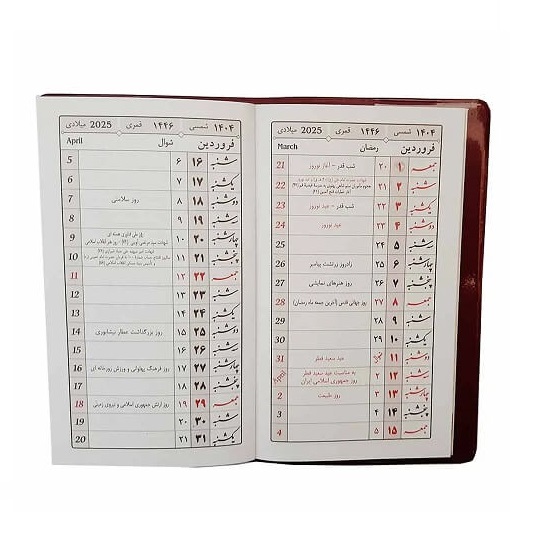 ۱۴۰۴ شمسی ۱۴۴۶ قمری 2025 میلادی
فروردین رمضان March
جمعه ۱ ۲۰ شب قدر - آغاز نوروز 21
شنبه ۲ ۲۱ 22
یکشنبه ۳ ۲۲ شب قدر - عید نوروز 23
دوشنبه ۴ ۲۳ عید نوروز 24
سه شنبه ۵ ۲۴ 25
چهارشنبه ۶ ۲۵ زادروز زرتشت پیامبر 26
پنجشنبه ۷ ۲۶ روز هنرهای نمایشی 27
جمعه ۸ ۲۷ روز جهانی قدس (آخرین جمعه ماه رمضان) 28
شنبه ۹ ۲۸ 29
یکشنبه ۱۰ ۲۹ 30
دوشنبه ۱۱ عید سعید فطر 31
سه شنبه ۱۲ ۲ به مناسبت عید سعید فطر April
روز جمهوری اسلامی ایران
چهارشنبه ۱۳ ۳ روز طبیعت 2
پنجشنبه ۱۴ ۴ 3
جمعه ۱۵ ۵ 4
۱۴۰۴ شمسی ۱۴۴۶ قمری 2025 میلادی
فروردین شوال April
شنبه ۱۶ ۶ 5
یکشنبه ۱۷ ۷ 6
دوشنبه ۱۸ ۸ روز سلامتی 7
سه شنبه ۱۹ ۹ 8
چهارشنبه ۲۰ ۱۰ 9
پنجشنبه ۲۱ ۱۱ 10
جمعه ۲۲ ۱۲ 11
شنبه ۲۳ ۱۳ 12
یکشنبه ۲۴ ۱۴ 13
دوشنبه ۲۵ ۱۵ روز بزرگداشت عطار نیشابوری 14
سه شنبه ۲۶ ۱۶ 15
چهارشنبه ۲۷ ۱۷ روز فرهنگ پهلوانی و ورزش زورخانه ای 16
پنجشنبه ۲۸ ۱۸ 17
جمعه ۲۹ ۱۹ روز ارتش جمهوری اسلامی و نیروی زمینی 18
شنبه ۳۰ ۲۰ 19
یکشنبه ۳۱ ۲۱ 20